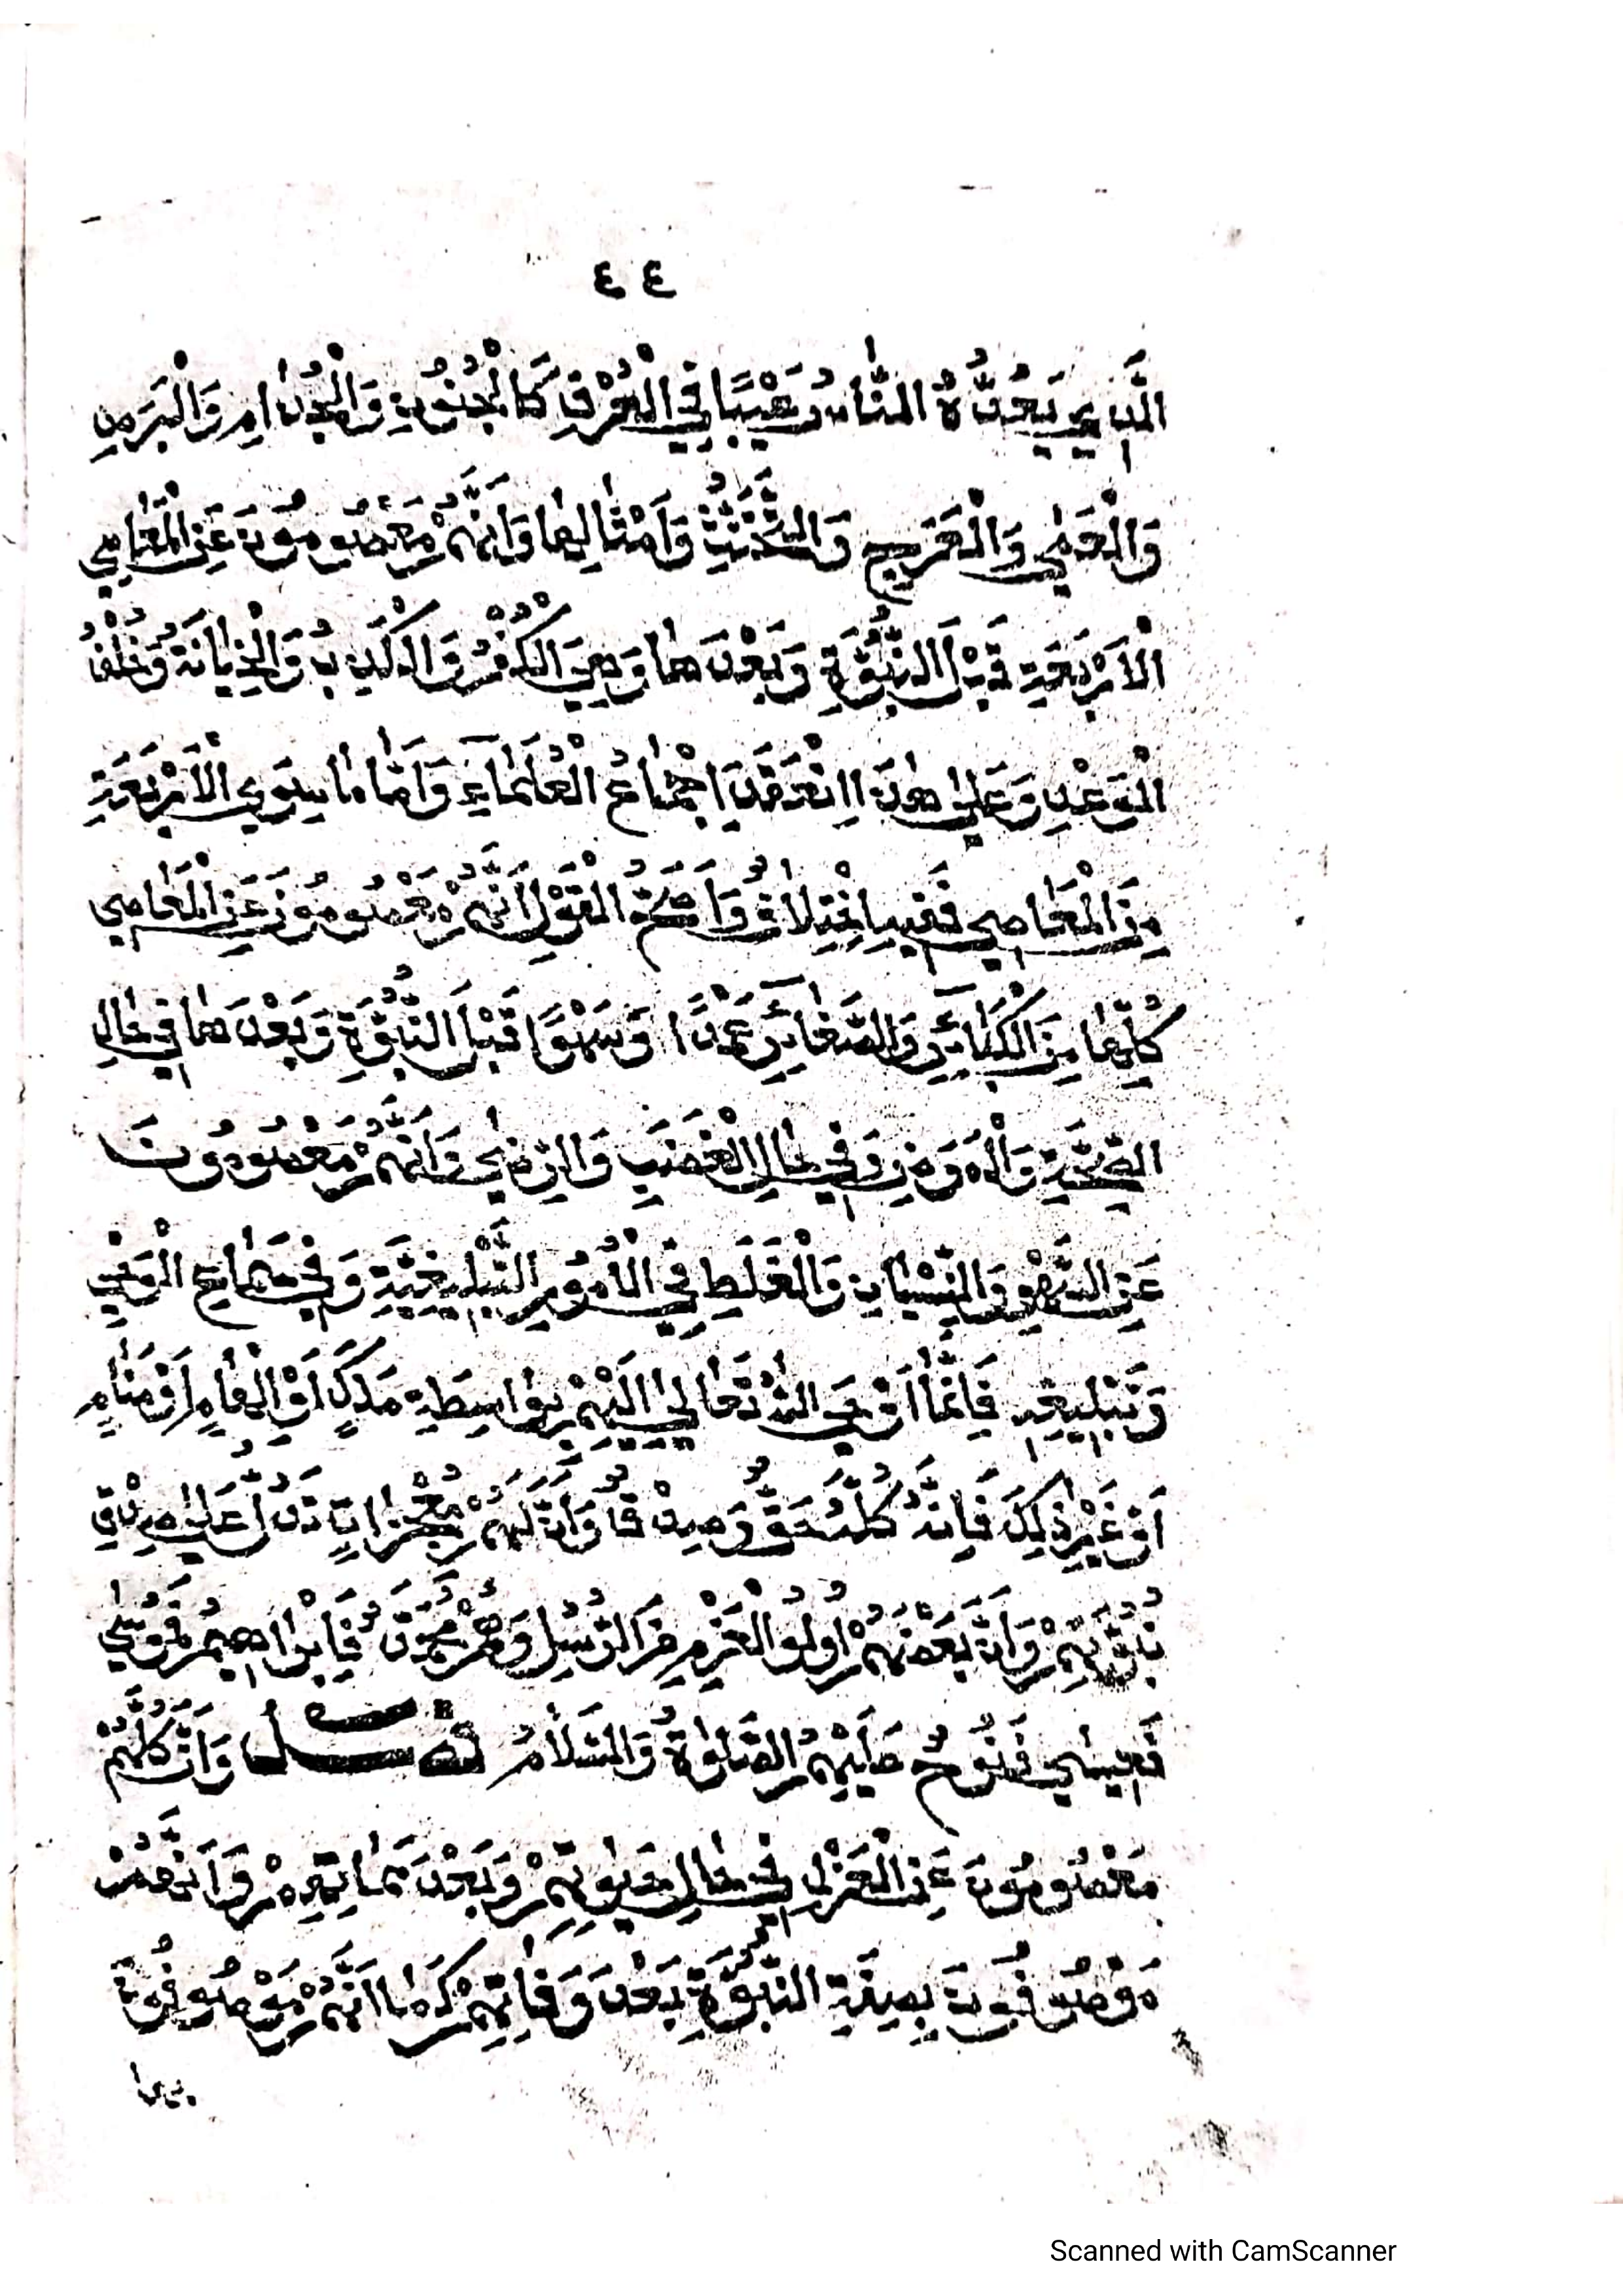 ٤٤
الَّذِي يَعُدُّهُ النَّاسُ عَيْبًا فِي الْعُرْفِ كَالْجُنُونِ وَالْجُذَامِ وَالْبَرَصِ
وَالْعَمٰى وَالْعَرَجِ وَالتَّخَنُّثِ وَاَمْثَالِهَا وَاَنَّهُمْ مَعْصُومُونَ عَنِ الْمَعَاصِي
الْاَرْبَعَةِ قَبْلَ النُّبُوَّةِ وَبَعْدَهَا وَهِيَ الْكُفْرُ وَالْكَذِبُ وَالْخِيَانَةُ وَخُلْفُ
الْوَعْدِ وَعَلٰى هٰذَا انْعَقَدَ اجْمَاعُ الْعُلَمَاءِ وَاَمَّا مَا سِوَى الْاَرْبَعَةِ
مِنَ الْمَعَاصِي فَفِيهِ اخْتِلَافٌ وَاَصَحُّ الْقَوْلِ اَنَّهُمْ مَعْصُومُونَ عَنِ الْمَعَاصِي
كُلِّهَا مِنَ الْكَبَائِرِ وَالصَّغَائِرِ عَمْدًا وَسَهْوًا قَبْلَ النُّبُوَّةِ وَبَعْدَهَا فِي حَالِ
الصِّحَّةِ وَالْمَرَضِ وَفِي حَالِ الْغَضَبِ وَالرِّضٰى وَاَنَّهُمْ مَعْصُومُونَ
عَنِ السَّهْوِ وَالنِّسْيَانِ وَالْغَلَطِ فِي الْاُمُورِ التَّبْلِيغِيَّةِ وَفِي سَمَاعِ الْوَحْيِ
وَتَبْلِيغِهِ فَاِنَّمَا اَوْحَى اللّٰهُ تَعَالٰى اِلَيْهِمْ بِوَاسِطَةِ مَلَكٍ اَوْ اِلْهَامٍ اَوْ مَنَامٍ
اَوْ غَيْرِ ذٰلِكَ فَاِنَّهُ كُلَّهُ حَقٌّ وَصِدْقٌ وَاَنَّ لَهُمْ مُعْجِزَاتٍ تَدُلُّ عَلٰى صِدْقِ
نُبُوَّتِهِمْ وَاَنَّ بَعْضَهُمْ اُولُوا الْعَزْمِ مِنَ الرُّسُلِ وَهُمْ مُحَمَّدٌ فَاِبْرَاهِيمُ فَمُوسٰى
فَعِيسٰى فَنُوحٌ عَلَيْهِمُ الصَّلٰوةُ وَالسَّلَامُ فصل وَاَنَّ كُلَّهُمْ
مَعْصُومُونَ عَنِ الْعَزْلِ فِي حَالِ حَيٰوتِهِمْ وَبَعْدَ مَمَاتِهِمْ وَاَنَّهُمْ
مَوْصُوفُونَ بِصِفَةِ النُّبُوَّةِ بَعْدَ وَفَاتِهِمْ كَمَا اَنَّهُمْ مَوْصُوفُونَ
بها
Scanned with CamScanner